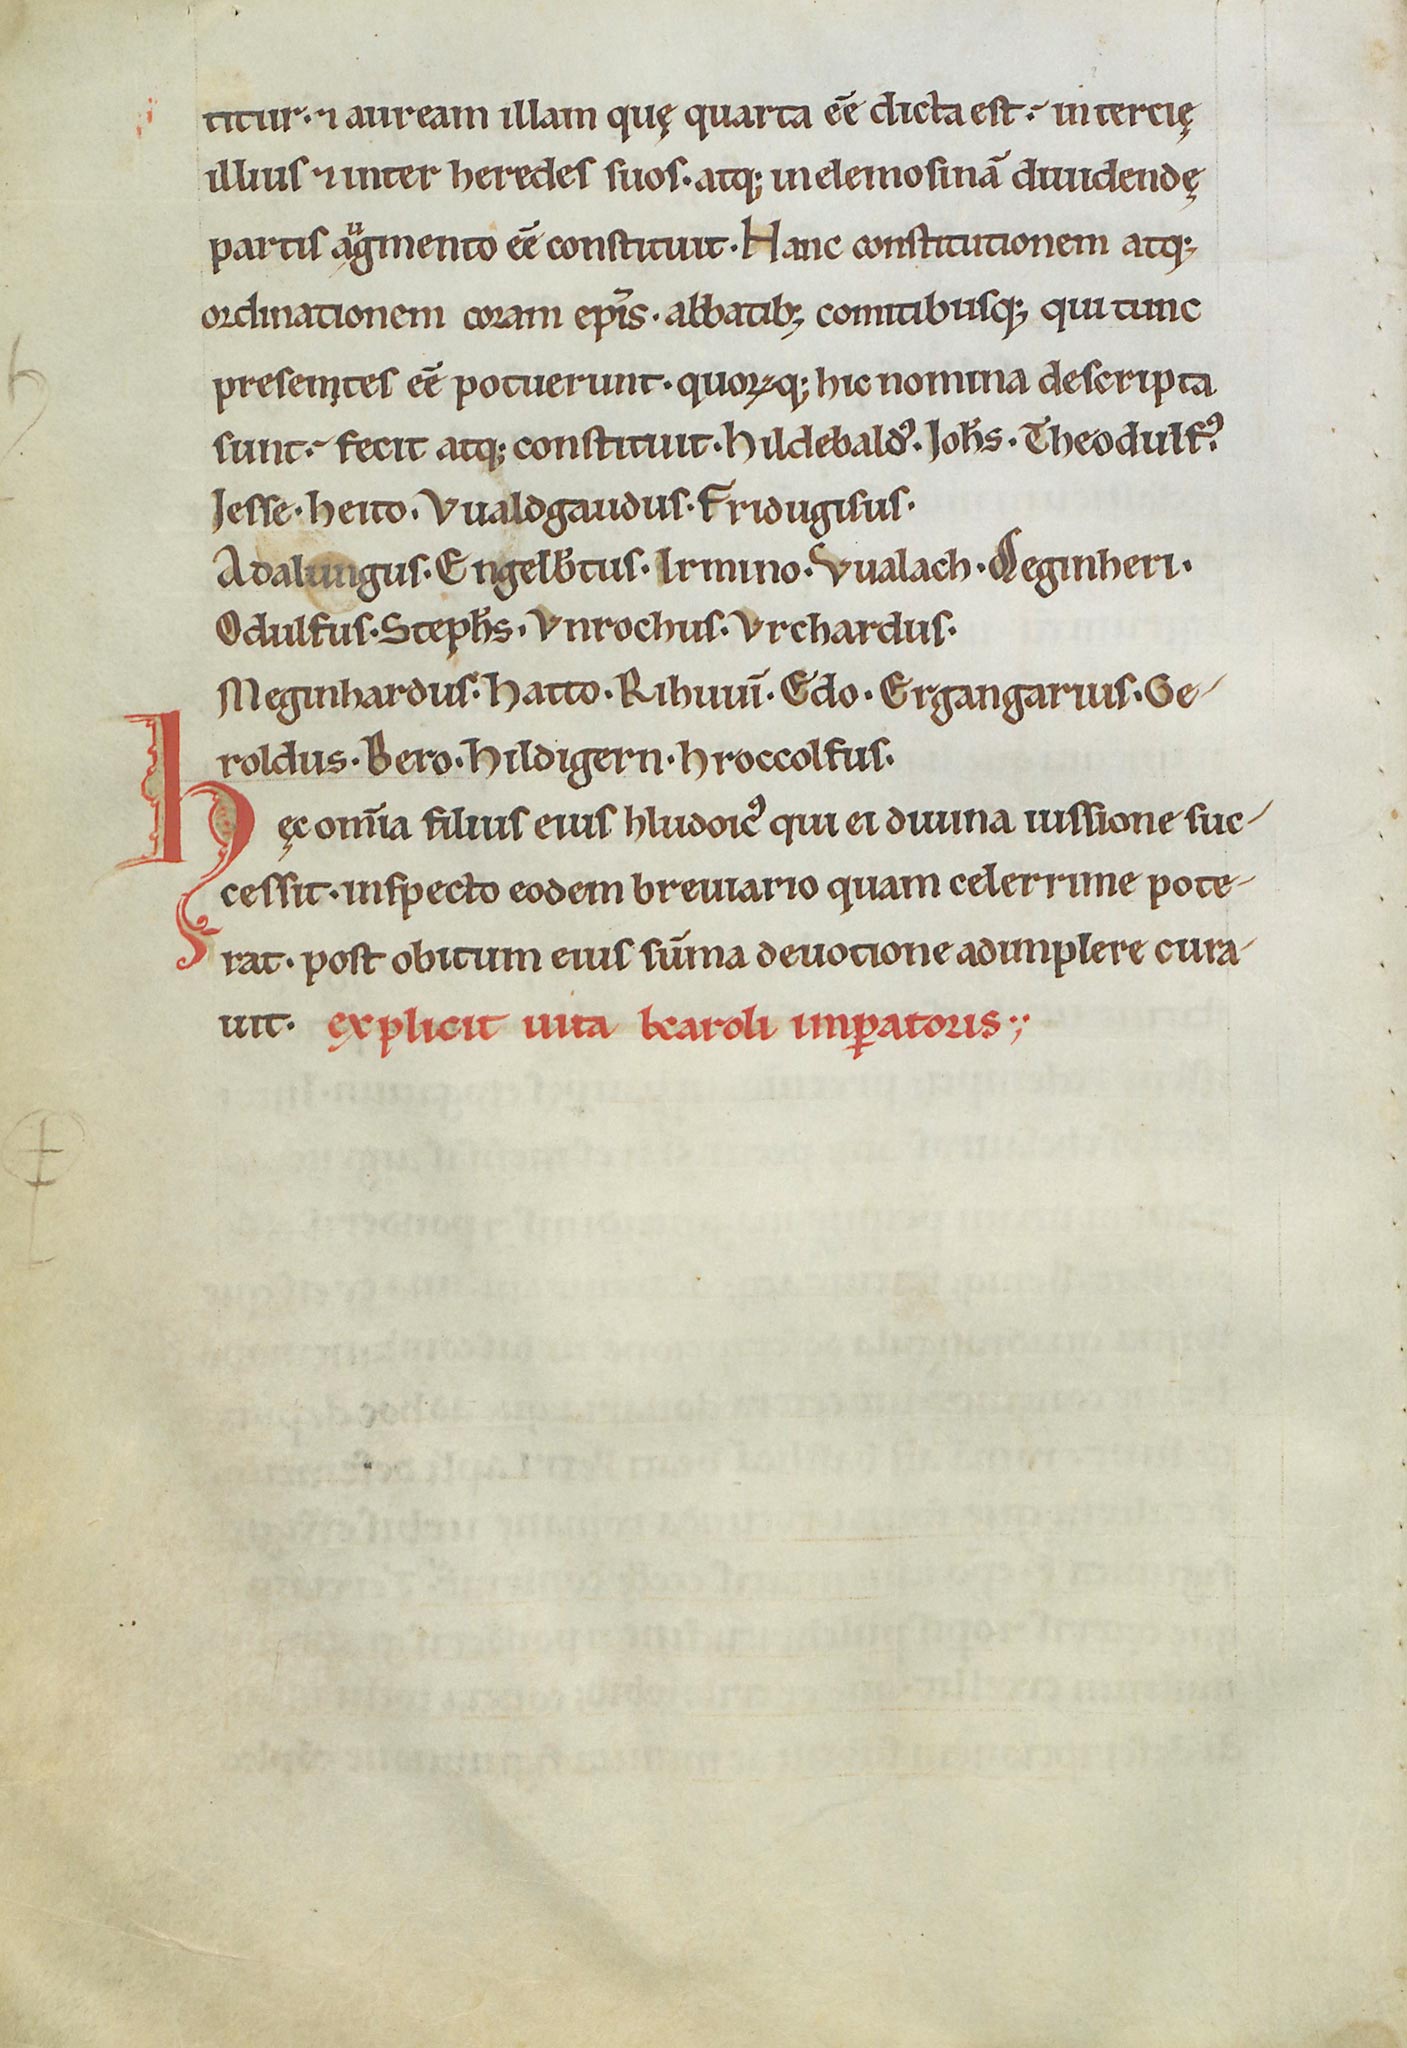 titur· ⁊ auream illam quę quarta eē dicta est·̃ in tercię
illius ⁊ inter heredes suos· atq; in elemosinā diuidendę
partis augmento eē constituit· Hanc constitutionem atq;
ordinationem coram ep̄is· abbatib; comitibusq; qui tunc
presentes eē potuerunt· quoꝝq; hic nomina descripta
sunt·̃ fecit atq; constituit· Hildebaldꝰ· Joħs· Theodulfꝰ·
Jesse· Heito· Vualdgaudus· Fridugisus·
Adalungus· Engelb̄tus· Irmino· Vualach· Meginheri·
Odulfus· Stepħs· Vnrochus· Vrchardus·
Meginhardus· Hatto· Rihuuī· Edo· Ergangarius· Ge-
roldus· Bero· Hildigern· Hroccolfus·
Hęc om̄ia filius eius hludoicꝰ qui ei diuina iussione suc-
cessit· inspecto eodem breuiario quam celerrime pote-
rat· post obitum eius sūma deuotione adimplere cura-
uit· explicit uita b karoli imꝑatoris·;